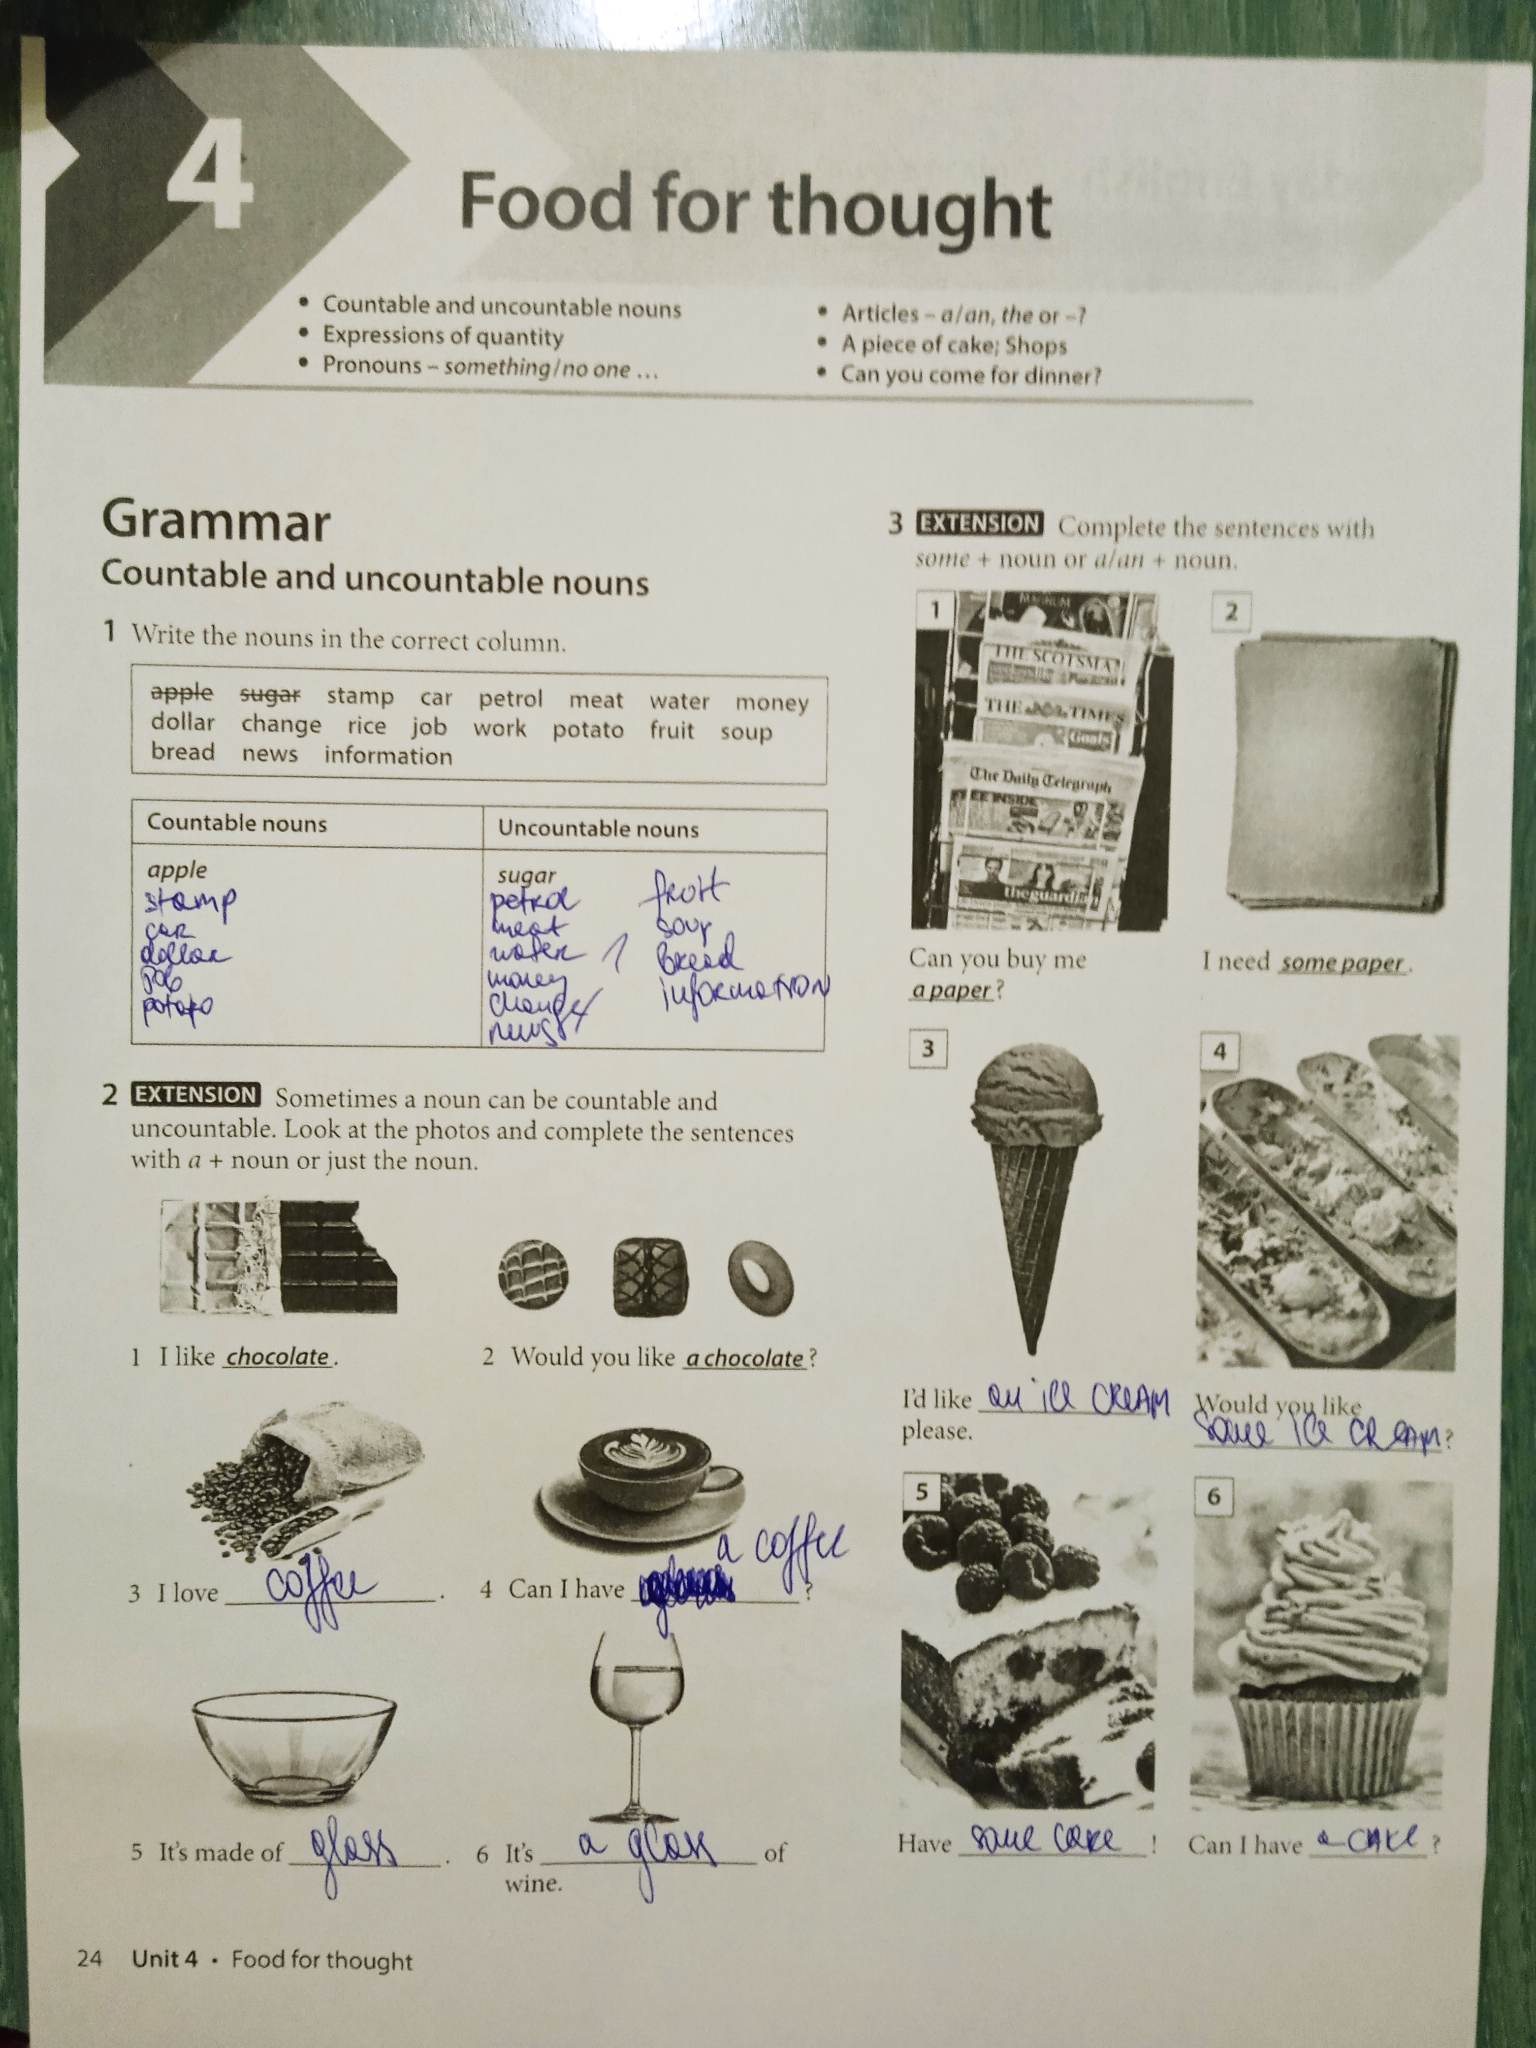 4
Food for thought
• Countable and uncountable nouns
• Expressions of quantity
• Pronouns – something/no one …
• Articles – a/an, the or –?
• A piece of cake; Shops
• Can you come for dinner?
Grammar
Countable and uncountable nouns
1 Write the nouns in the correct column.
apple sugar stamp car petrol meat water money
dollar change rice job work potato fruit soup
bread news information
Countable nouns
apple
stamp
car
dollar
job
potato
Uncountable nouns
sugar
petrol
meat
water
money
change
news
fruit
soup
bread
information
2 EXTENSION Sometimes a noun can be countable and
uncountable. Look at the photos and complete the sentences
with a + noun or just the noun.
1 I like chocolate.
2 Would you like a chocolate?
3 I love coffee.
4 Can I have a coffee?
5 It's made of glass.
6 It's a glass of
wine.
3 EXTENSION Complete the sentences with
some + noun or a/an + noun.
1
THE SCOTSMA
THE TIMES
Goals
The Daily Telegraph
EE INSIDE
theguardian
Can you buy me
a paper?
2
I need some paper.
3
I'd like an ice cream
please.
4
Would you like
some ice cream?
5
Have some cake!
6
Can I have a cake?
24 Unit 4 • Food for thought